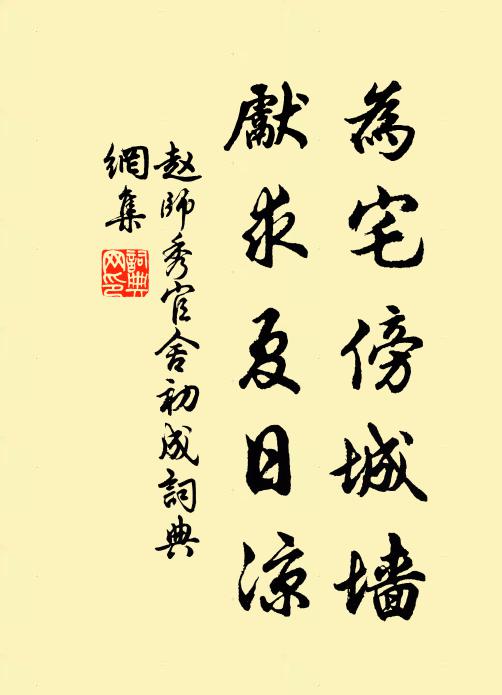 為宅傍城墙
獻求夏日涼
赵師秀官舍初成詞典
網集
詞典
网印